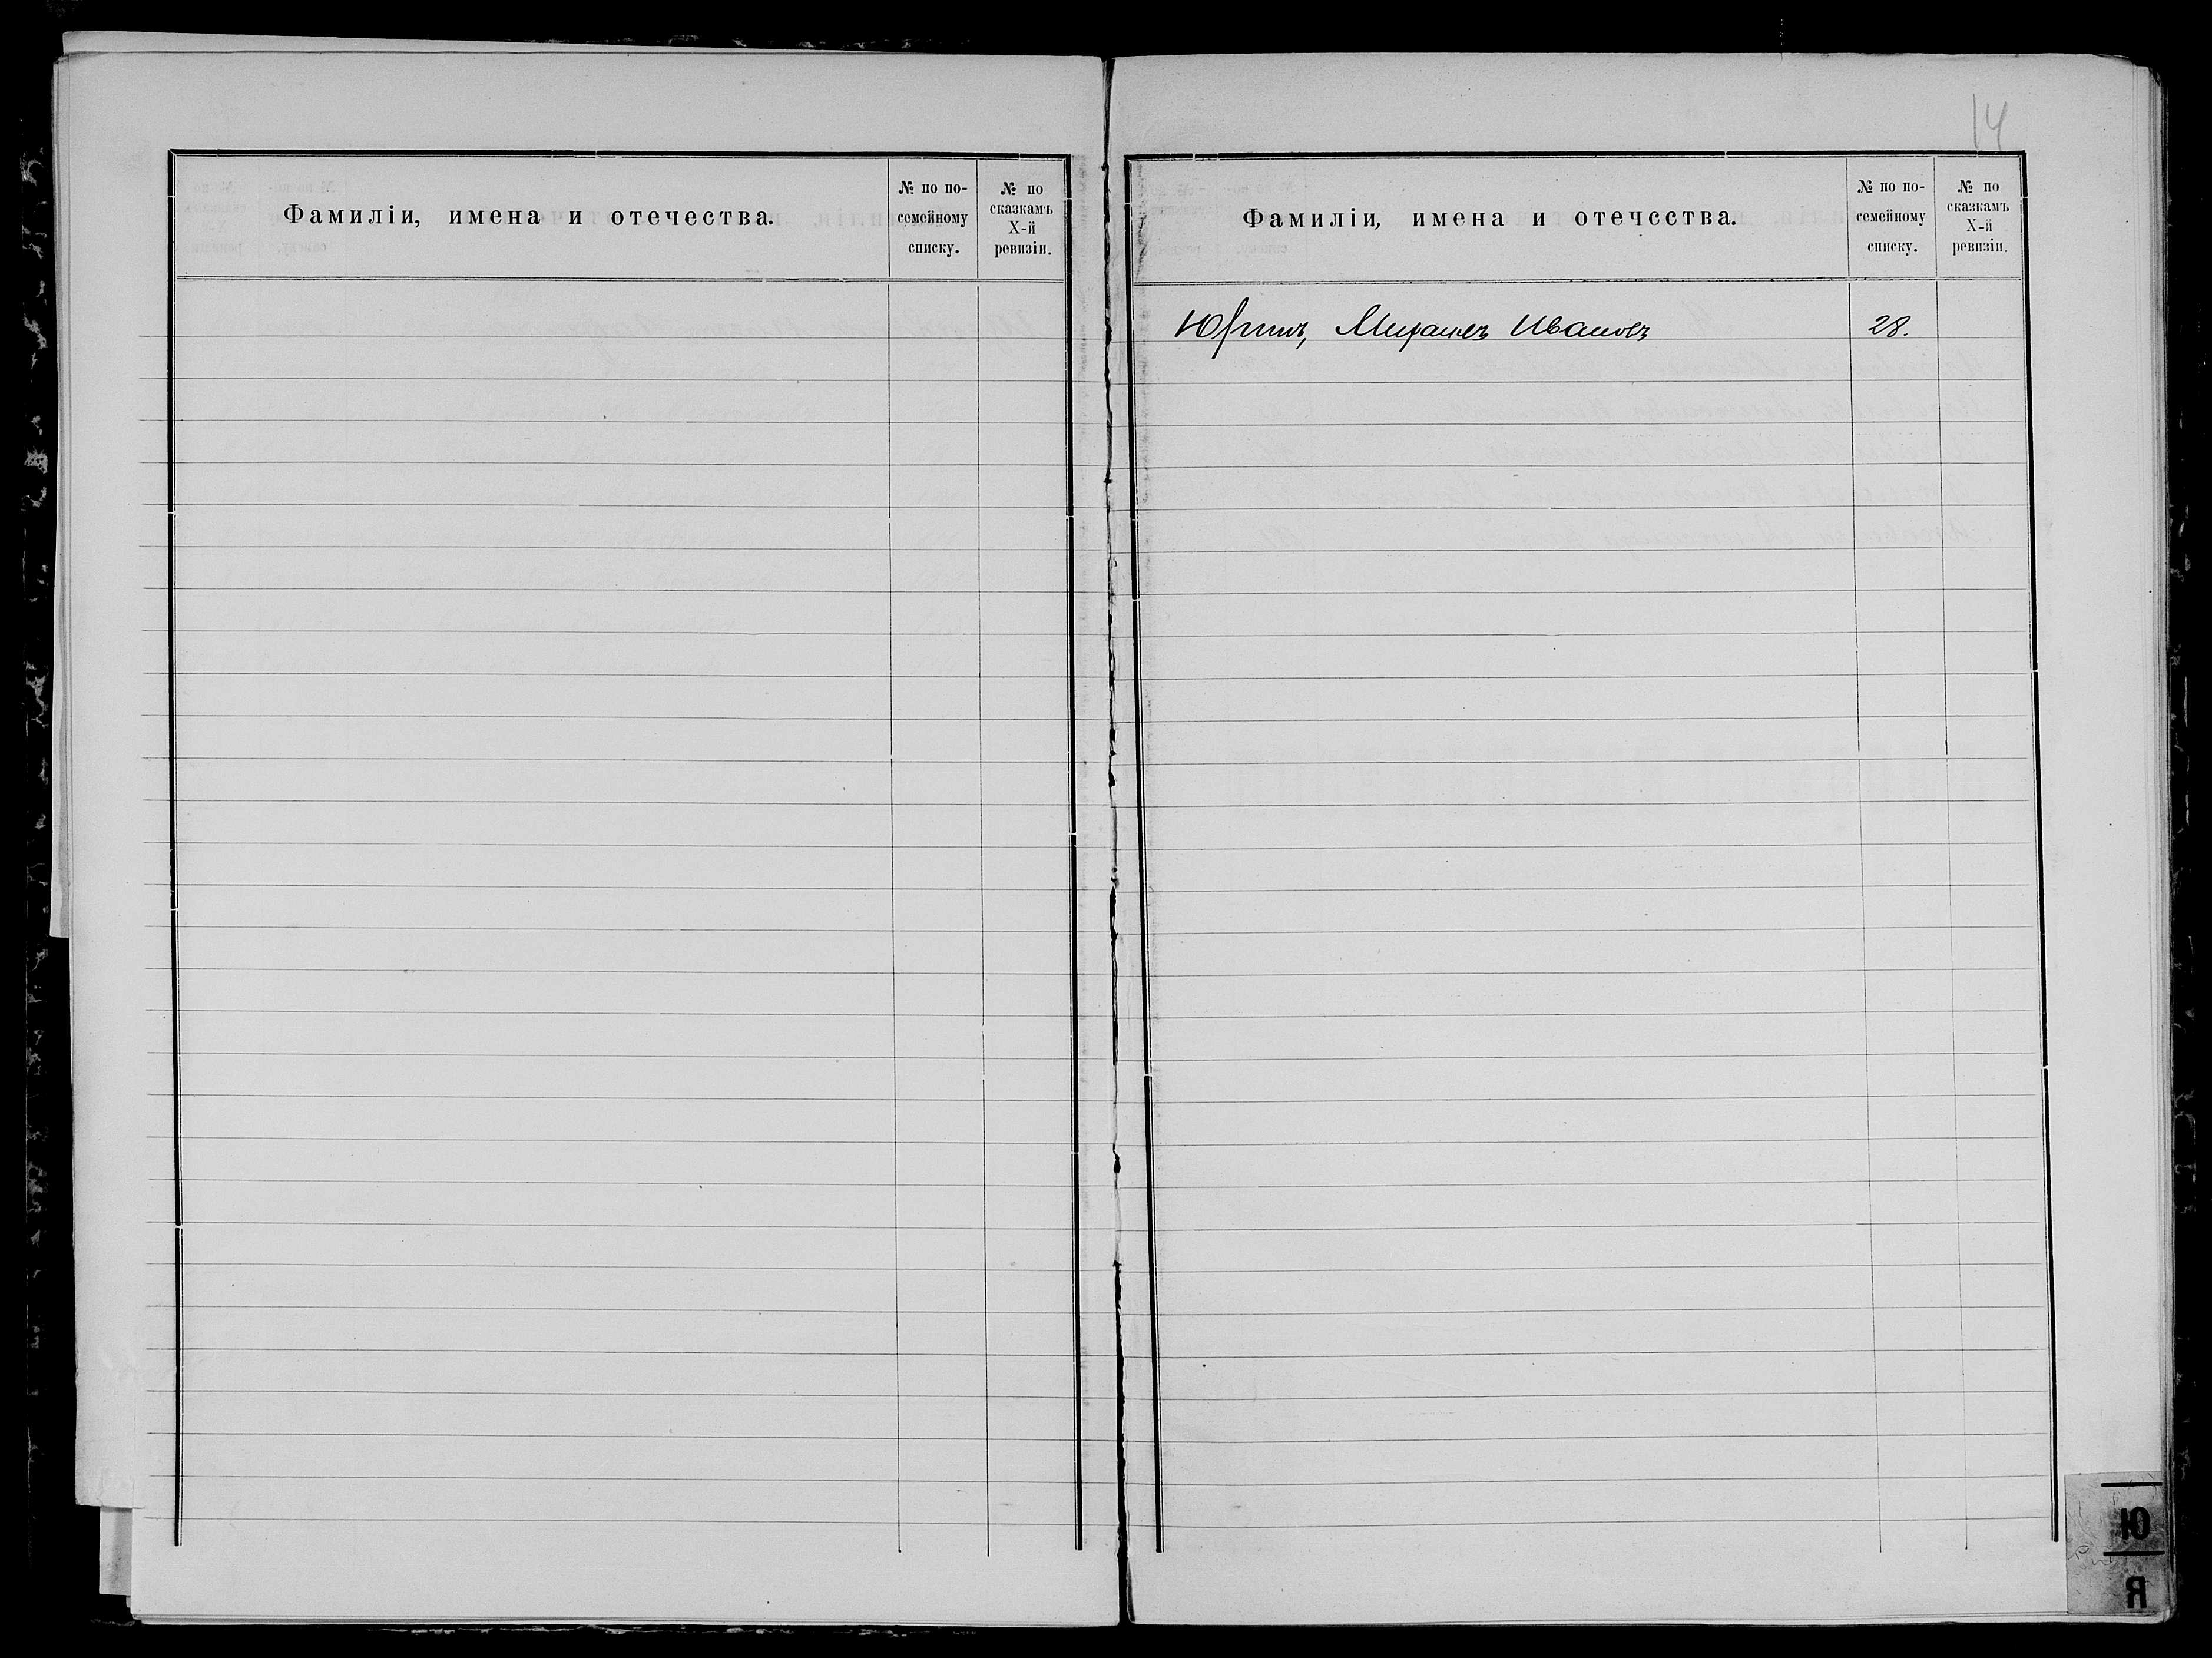 Фамиліи, имена и отечества.
№ по по-
семейному
списку.
№ по
сказкамъ
X-й
ревизіи.
14
Фамиліи, имена и отечества.
№ по по-
семейному
списку.
№ по
сказкамъ
X-й
ревизіи.
Юринъ, Михаилъ Ивановъ 28.
Ю
Я